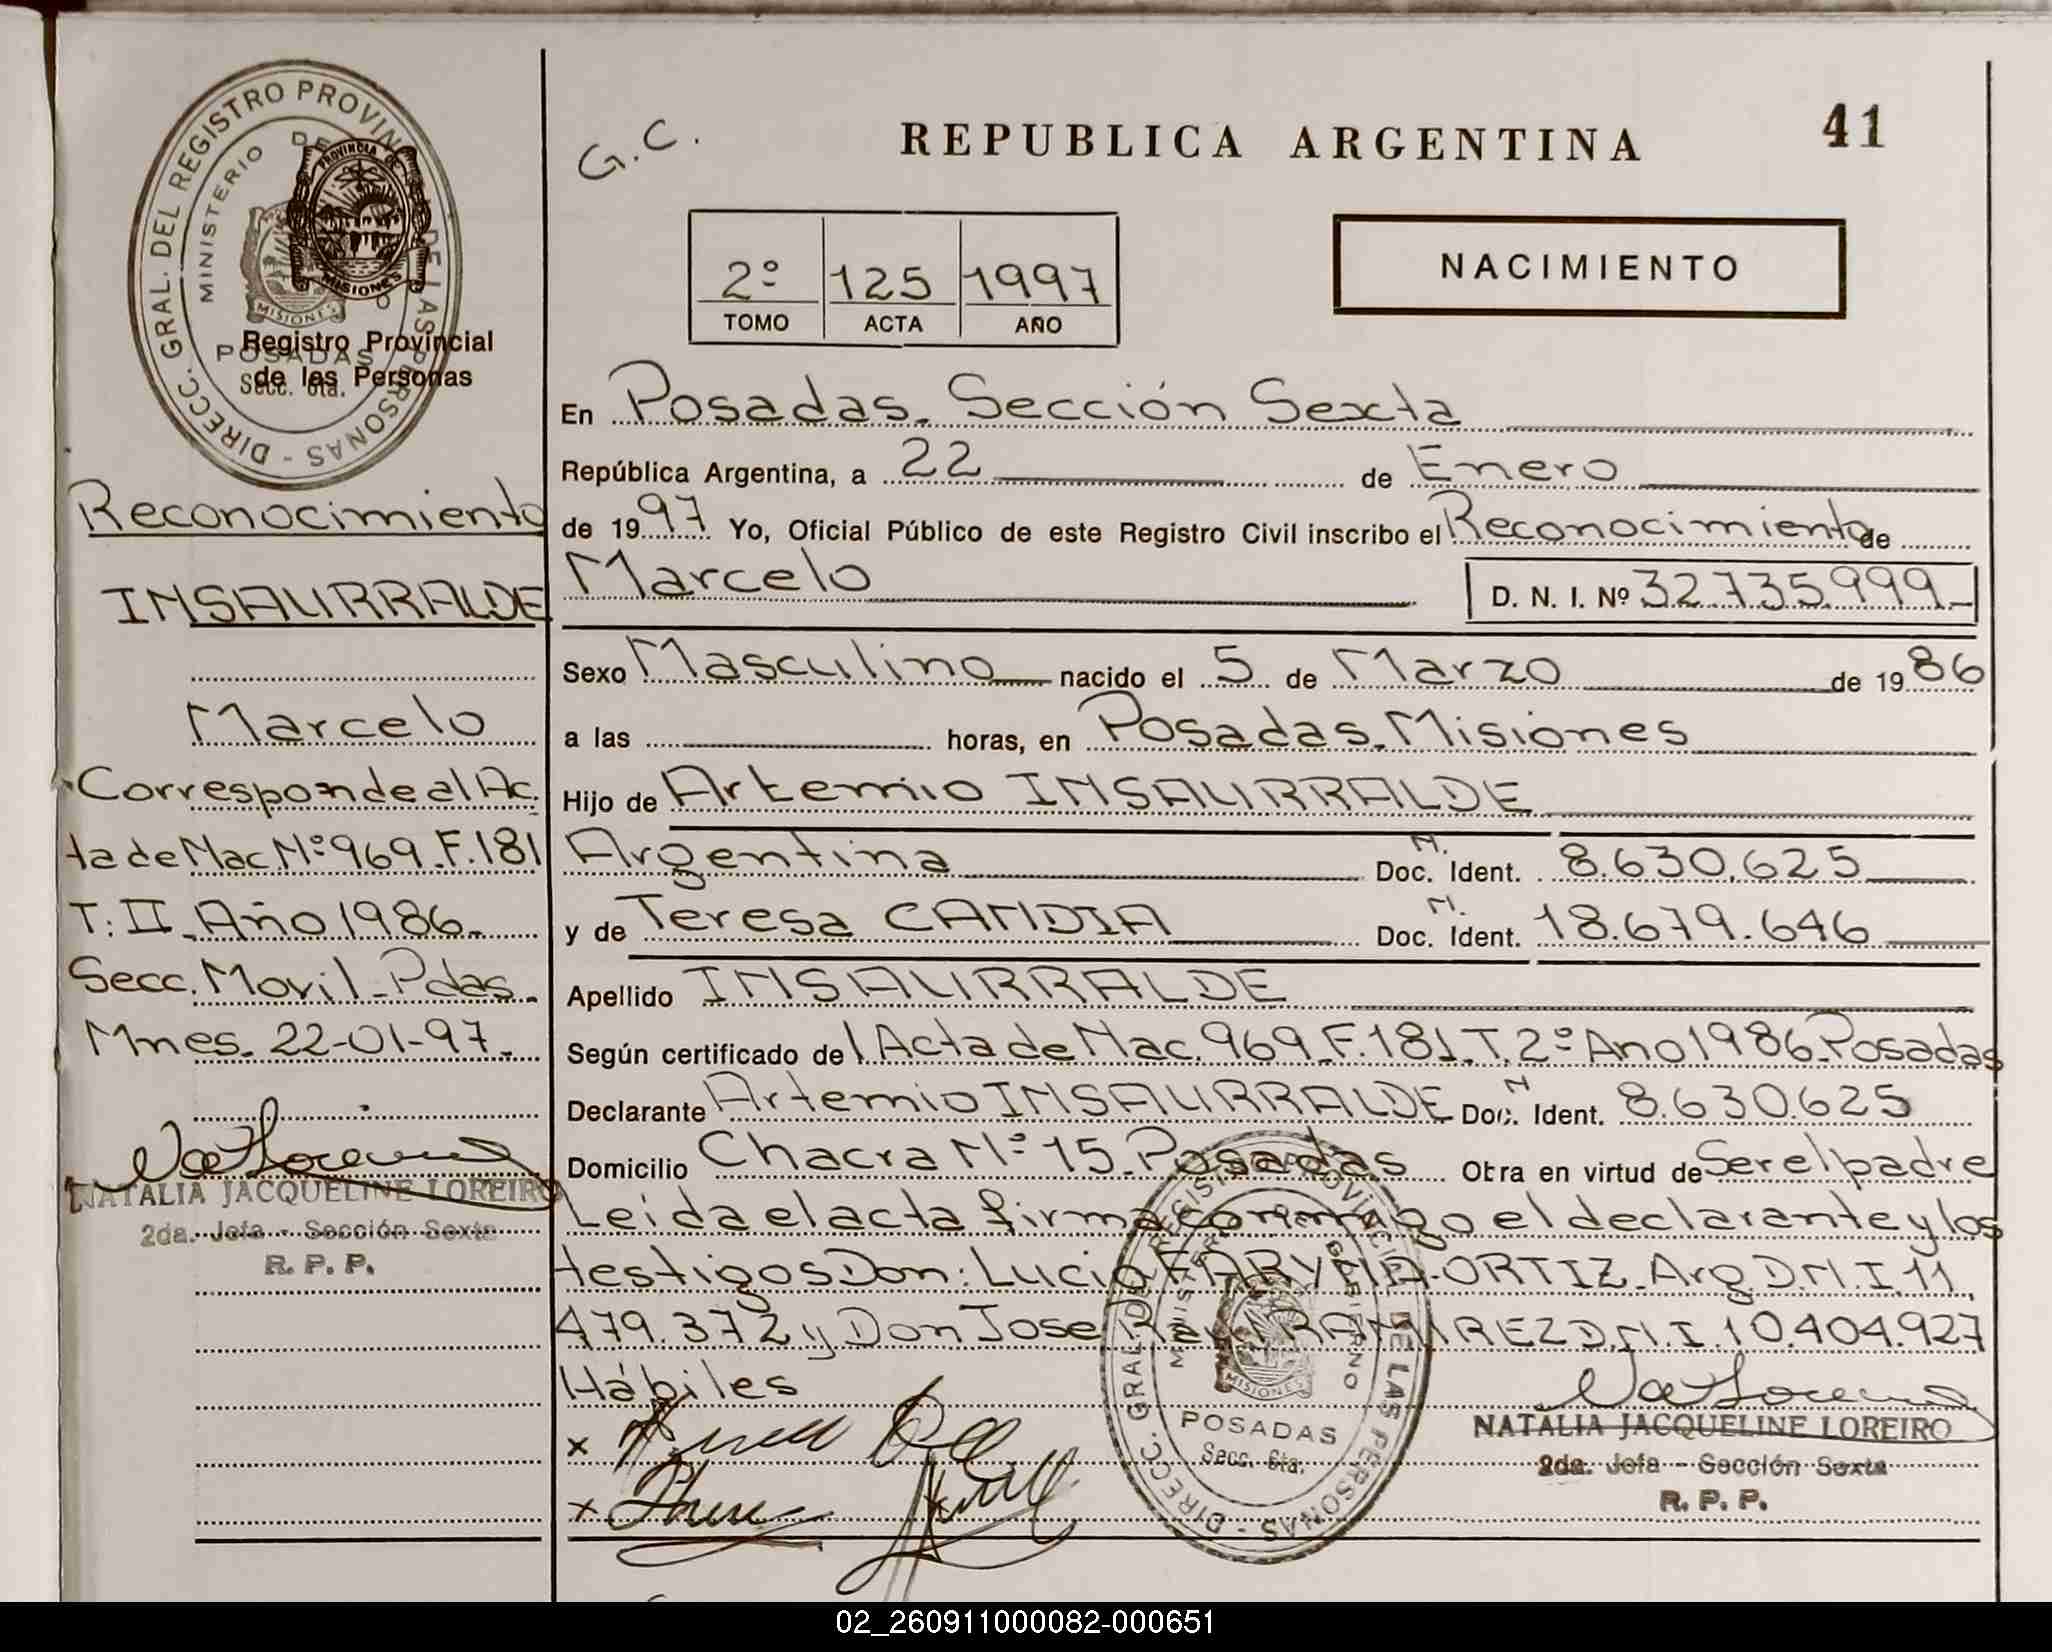 DIRECC. GRAL. DEL REGISTRO PROVINCIAL DE LAS PERSONAS
MINISTERIO DE
PROVINCIA DE
MISIONES
MISIONES
POSADAS
Secc. 6ta.
Registro Provincial
de las Personas
Reconocimiento
INSAURRALDE
Marcelo
Corresponde al Ac.
ta de Nac. Nº 969. F. 181
T: II. Año 1986.
Secc. Movil - Pdas.
Mnes. 22-01-97.
NATALIA JACQUELINE LOREIRO
2da. Jefa - Sección Sexta
R. P. P.
G.C.
REPUBLICA ARGENTINA
41
2º 125 1997
TOMO ACTA AÑO
NACIMIENTO
En Posadas. Sección Sexta
República Argentina, a 22 de Enero
de 1997 Yo, Oficial Público de este Registro Civil inscribo el Reconocimiento de
Marcelo D. N. I. Nº 32.735.999
Sexo Masculino nacido el 5 de Marzo de 1986
a las horas, en Posadas. Misiones
Hijo de Artemio INSAURRALDE
Argentina N. Doc. Ident. 8.630.625
y de Teresa CANDIA N. Doc. Ident. 18.679.646
Apellido INSAURRALDE
Según certificado del Acta de Nac. 969. F. 181. T. 2º Ano 1986. Posadas
Declarante Artemio INSAURRALDE N Doc. Ident. 8.630.625
Domicilio Chacra Nº 15. Posadas Obra en virtud de Ser el padre
Leída el acta firma conmigo el declarante y los
testigos Don: Lucio ORTIZ. Arg. D.N.I. 11.
479.372 y Don Jose RAMIREZ D.N.I. 10.404.927
Hábiles
DIRECC. GRAL. DEL REGISTRO PROVINCIAL DE LAS PERSONAS
MINISTERIO DE GOBIERNO
MISIONES
POSADAS
Secc. 6ta.
NATALIA JACQUELINE LOREIRO
2da. Jefa - Sección Sexta
R. P. P.
x
x
02_260911000082-000651